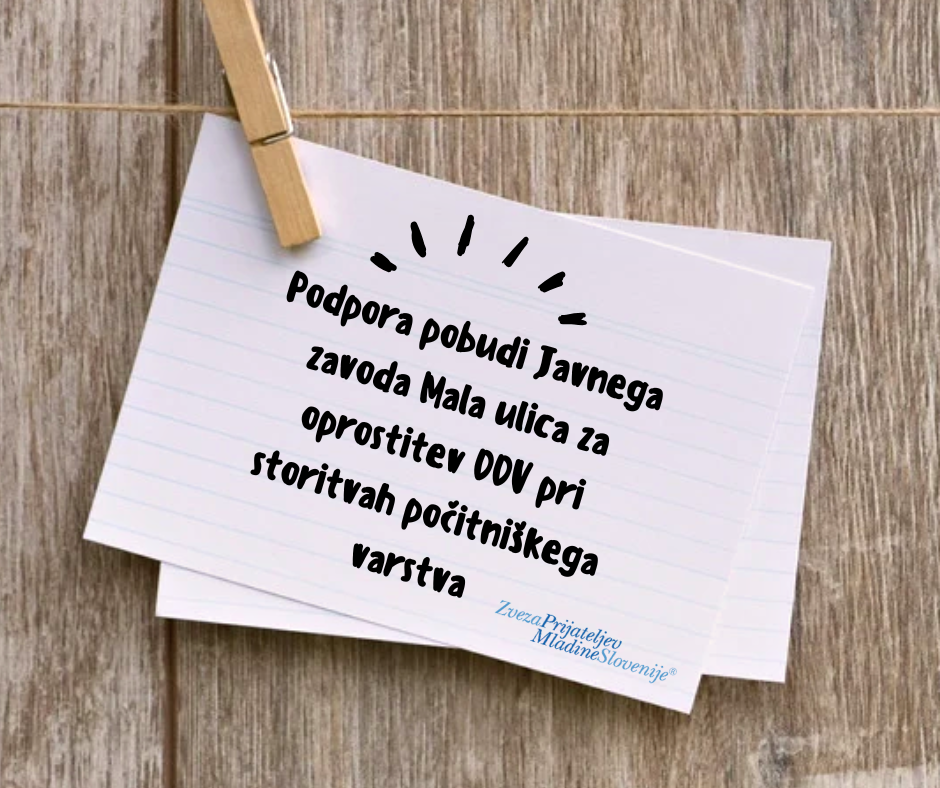 Podpora pobudi Javnega
zavoda Mala ulica za
oprostitev DDV pri
storitvah počitniškega
varstva
ZvezaPrijateljev
MladineSlovenije®